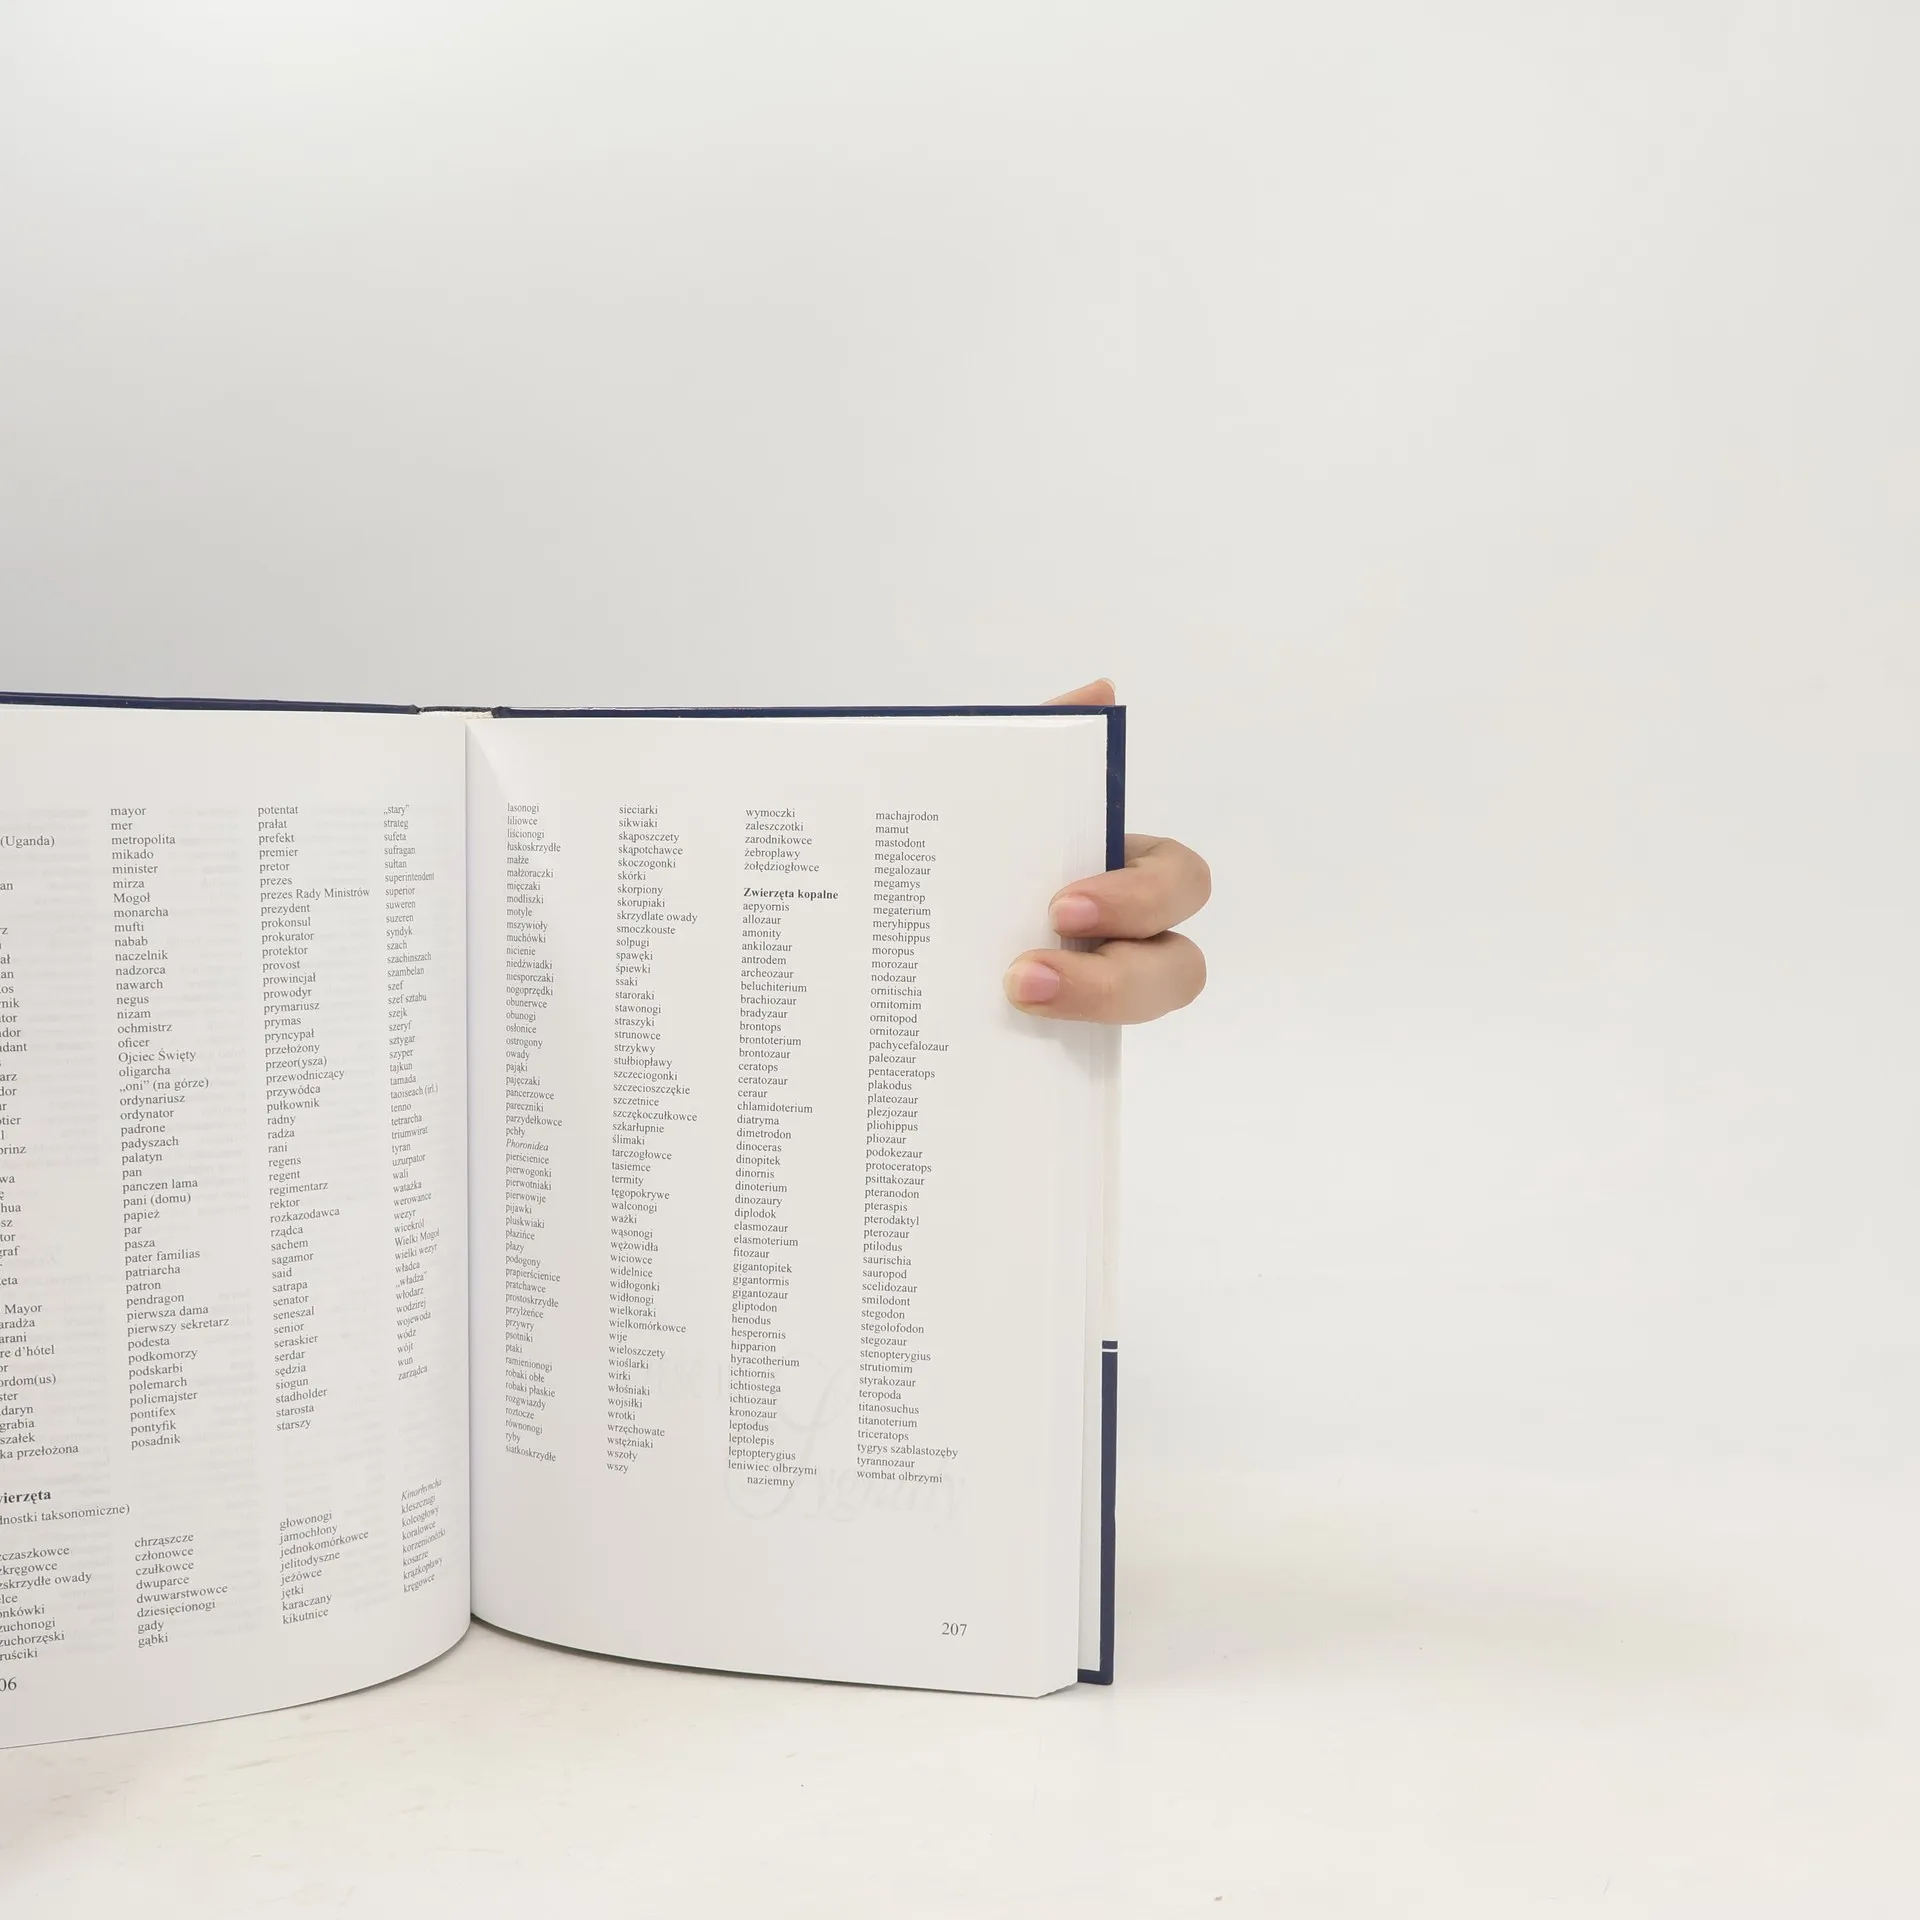 (Uganda)
mayor
mer
metropolita
mikado
minister
mirza
Mogoł
monarcha
mufti
nabab
naczelnik
nadzorca
nawarch
negus
nizam
ochmistrz
oficer
Ojciec Święty
oligarcha
„oni” (na górze)
ordynariusz
ordynator
padrone
padyszach
palatyn
pan
panczen lama
pani (domu)
papież
par
pasza
pater familias
patriarcha
patron
pendragon
pierwsza dama
pierwszy sekretarz
podesta
podkomorzy
podskarbi
polemarch
policmajster
pontifex
pontyfik
posadnik
potentat
prałat
prefekt
premier
pretor
prezes
prezes Rady Ministrów
prezydent
prokonsul
prokurator
protektor
provost
prowincjał
prowodyr
prymariusz
prymas
pryncypał
przełożony
przeor(ysza)
przewodniczący
przywódca
pułkownik
radny
radża
rani
regens
regent
regimentarz
rektor
rozkazodawca
rządca
sachem
sagamor
said
satrapa
senator
seneszal
senior
seraskier
serdar
sędzia
siogun
stadholder
starosta
starszy
„stary”
strateg
sufeta
sufragan
sułtan
superintendent
superior
suweren
suzeren
syndyk
szach
szachinszach
szambelan
szef
szef sztabu
szejk
szeryf
sztygar
szyper
tajkun
tamada
taoiseach (irl.)
tenno
tetrarcha
triumwirat
tyran
uzurpator
wali
watażka
werowance
wezyr
wicekról
Wielki Mogoł
wielki wezyr
władca
„władza”
włodarz
wodzirej
wojewoda
wódz
wójt
wun
zarządca
chrząszcze
członowce
czułkowce
dwuparce
dwuwarstwowce
dziesięcionogi
gady
gąbki
głowonogi
jamochłony
jednokomórkowce
jelitodyszne
jeżówce
jętki
karaczany
kikutnice
Kinorhyncha
kleszczugi
kolcogłowy
koralowce
korzenionóżki
kosarze
krążkopławy
kręgowce
lasonogi
liliowce
liścionogi
łuskoskrzydłe
małże
małżoraczki
mięczaki
modliszki
motyle
mszywioły
muchówki
nicienie
niedźwiadki
niesporczaki
nogoprzędki
obunerwce
obunogi
osłonice
ostrogony
owady
pająki
pajęczaki
pancerzowce
pareczniki
parzydełkowce
pchły
Phoronidea
pierścienice
pierwogonki
pierwotniaki
pierwowije
pijawki
pluskwiaki
płazińce
płazy
podogony
prapierścienice
pratchawce
prostoskrzydłe
przylżeńce
przywry
psotniki
ptaki
ramienionogi
robaki obłe
robaki płaskie
rozgwiazdy
roztocze
równonogi
ryby
siatkoskrzydłe
sieciarki
sikwiaki
skąposzczety
skąpotchawce
skoczogonki
skórki
skorpiony
skorupiaki
skrzydlate owady
smoczkouste
solpugi
spawęki
śpiewki
ssaki
staroraki
stawonogi
straszyki
strunowce
strzykwy
stułbiopławy
szczeciogonki
szczecioszczękie
szczetnice
szczękoczułkowce
szkarłupnie
ślimaki
tarczogłowce
tasiemce
termity
tęgopokrywe
walconogi
ważki
wąsonogi
wężowidła
wiciowce
widelnice
widłogonki
widłonogi
wielkoraki
wielkomórkowce
wije
wieloszczety
wioślarki
wirki
włośniaki
wojsiłki
wrotki
wrzęchowate
wstężniaki
wszoły
wszy
wymoczki
zaleszczotki
zarodnikowce
żebropławy
żołędziogłowce
Zwierzęta kopalne
aepyornis
allozaur
amonity
ankilozaur
antrodem
archeozaur
beluchiterium
brachiozaur
bradyzaur
brontops
brontoterium
brontozaur
ceratops
ceratozaur
ceraur
chlamidoterium
diatryma
dimetrodon
dinoceras
dinopitek
dinornis
dinoterium
dinozaury
diplodok
elasmozaur
elasmoterium
fitozaur
gigantopitek
gigantormis
gigantozaur
gliptodon
henodus
hesperornis
hipparion
hyracotherium
ichtiornis
ichtiostega
ichtiozaur
kronozaur
leptodus
leptolepis
leptopterygius
leniwiec olbrzymi
naziemny
machajrodon
mamut
mastodont
megaloceros
megalozaur
megamys
megantrop
megaterium
meryhippus
mesohippus
moropus
morozaur
nodozaur
ornitischia
ornitomim
ornitopod
ornitozaur
pachycefalozaur
paleozaur
pentaceratops
plakodus
plateozaur
plezjozaur
pliohippus
pliozaur
podokezaur
protoceratops
psittakozaur
pteranodon
pteraspis
pterodaktyl
pterozaur
ptilodus
saurischia
sauropod
scelidozaur
smilodont
stegodon
stegolofodon
stegozaur
stenopterygius
strutiomim
styrakozaur
teropoda
titanosuchus
titanoterium
triceratops
tygrys szablastozęby
tyrannozaur
wombat olbrzymi
207